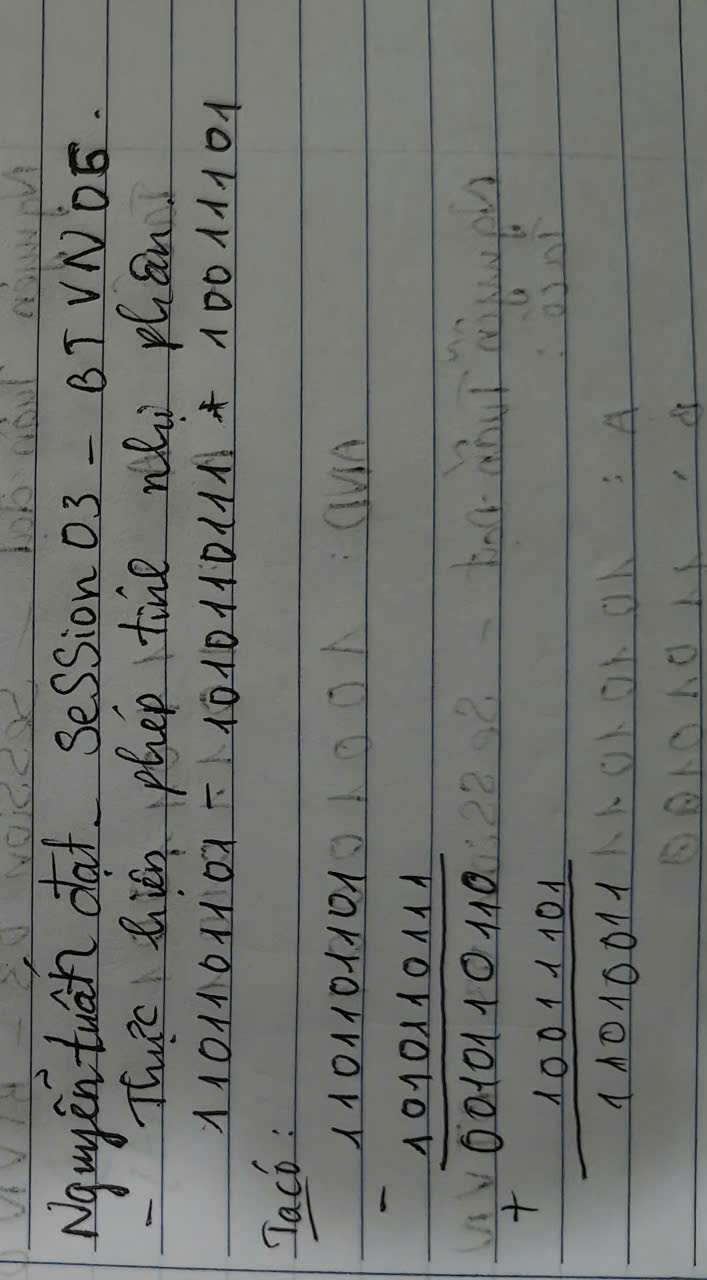 Nguyễn tuấn đạt - Session 03 - BTVN 05.
- Thực hiện phép tính nhị phân.
1101101101 - 1010110111 + 100111101
Ta có:
1101101101
- 1010110111
0010110110
+ 100111101
11010011